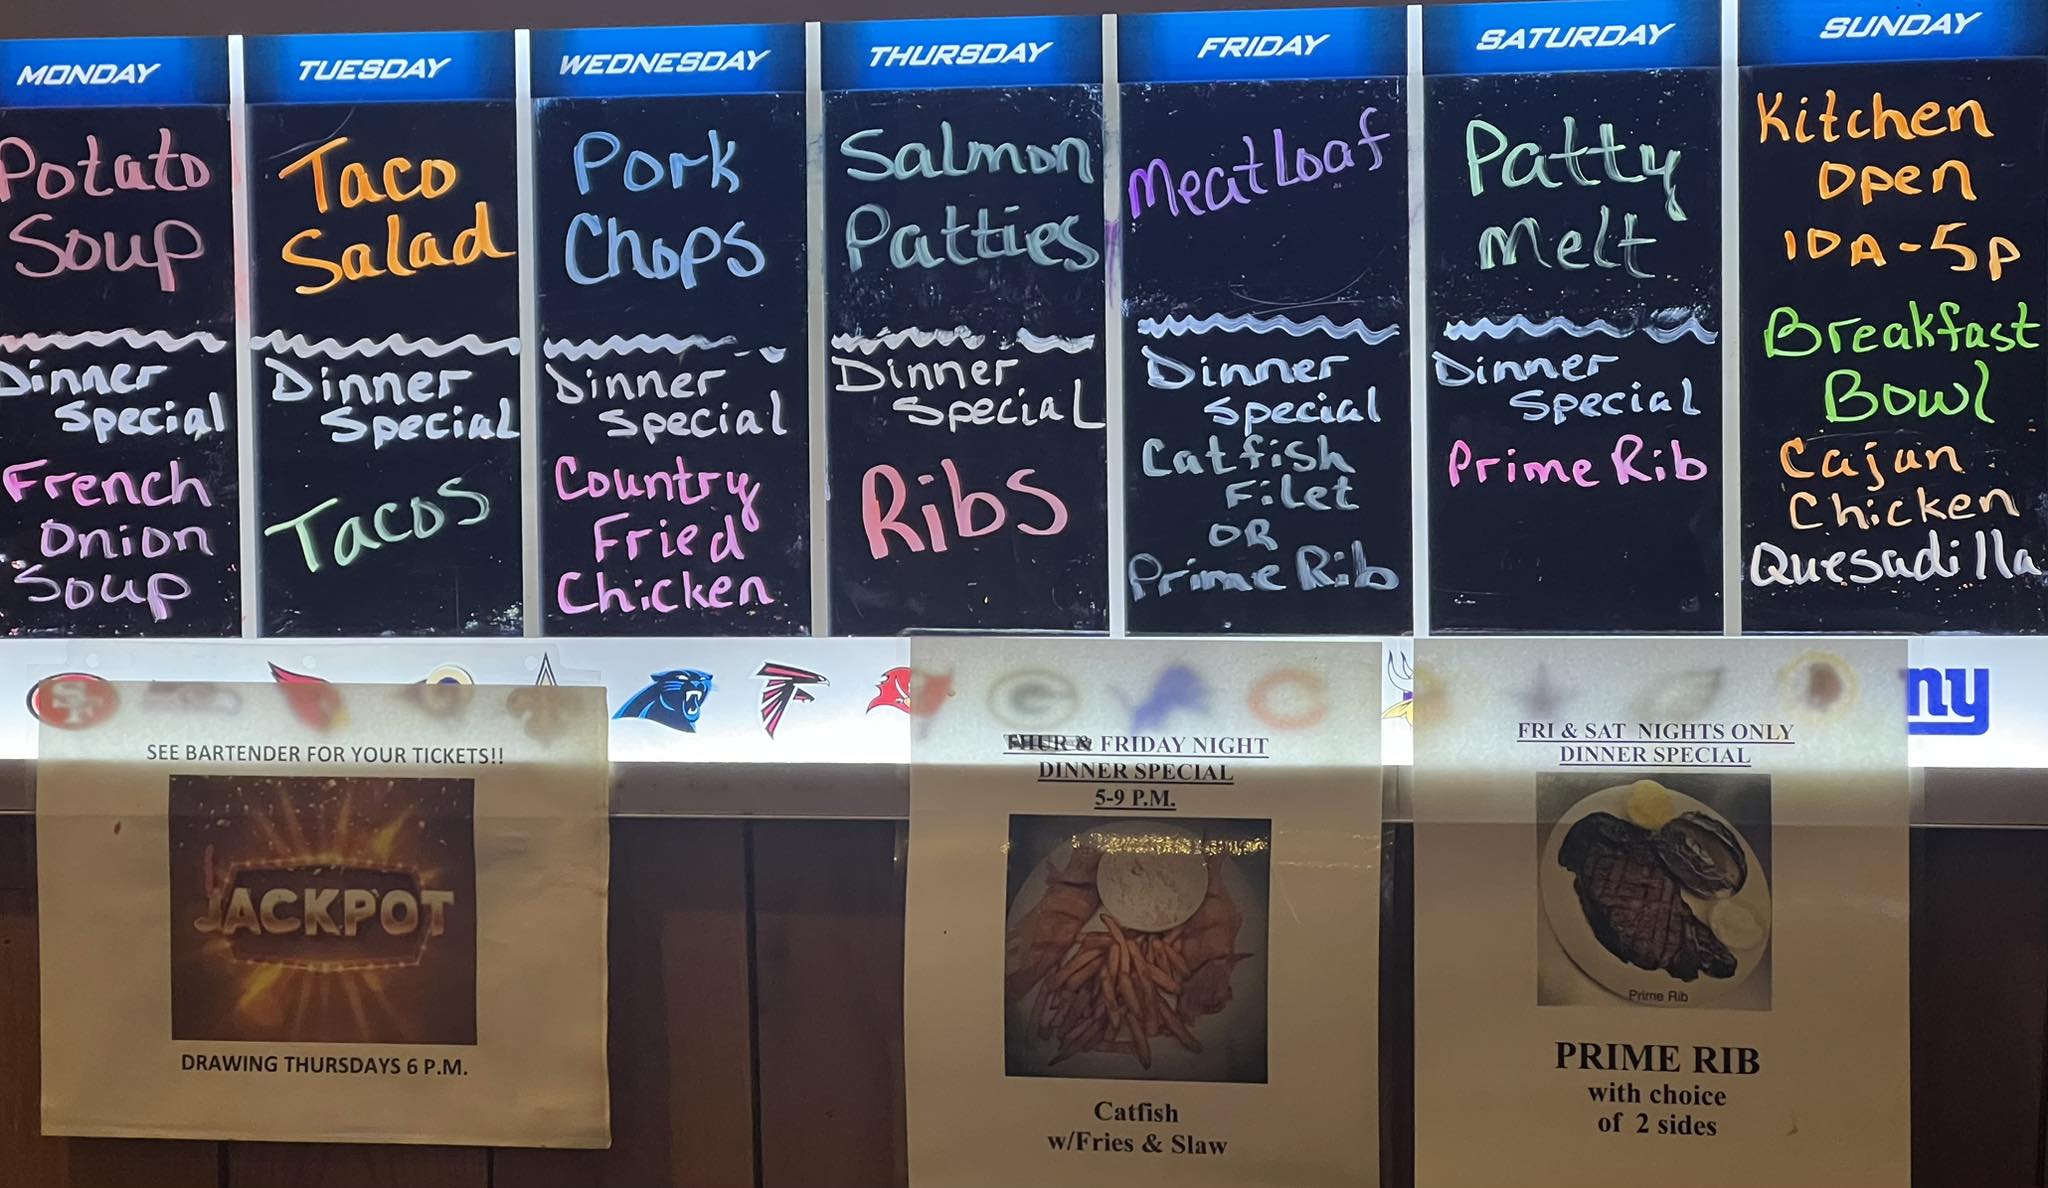 MONDAY
Potato
Soup
Dinner
Special
French
Onion
Soup
TUESDAY
Taco
Salad
Dinner
Special
Tacos
WEDNESDAY
Pork
Chops
Dinner
Special
Country
Fried
Chicken
THURSDAY
Salmon
Patties
Dinner
Special
Ribs
FRIDAY
Meatloaf
Dinner
Special
Catfish
Filet
OR
Prime Rib
SATURDAY
Patty
Melt
Dinner
Special
Prime Rib
SUNDAY
Kitchen
Open
10A-5P
Breakfast
Bowl
Cajun
Chicken
Quesadilla
SF
G
C
ny
SEE BARTENDER FOR YOUR TICKETS!!
JACKPOT
DRAWING THURSDAYS 6 P.M.
THUR & FRIDAY NIGHT
DINNER SPECIAL
5-9 P.M.
Catfish
w/Fries & Slaw
FRI & SAT NIGHTS ONLY
DINNER SPECIAL
Prime Rib
PRIME RIB
with choice
of 2 sides